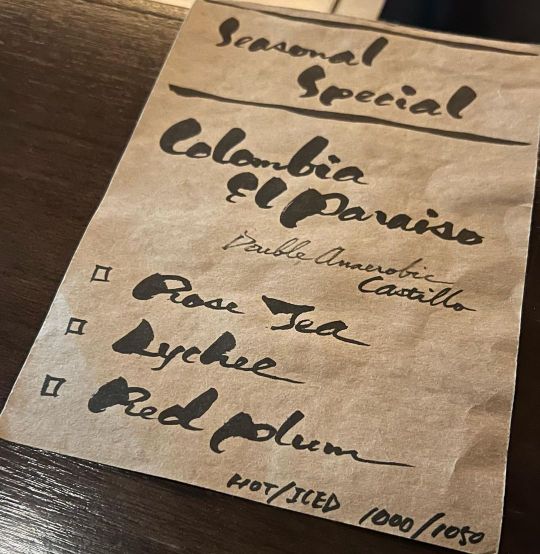 Seasonal
Special
Colombia
El Paraiso
Double Anaerobic
Castillo
Rose Tea
Lychee
Red plum
HOT/ICED 1000/1050